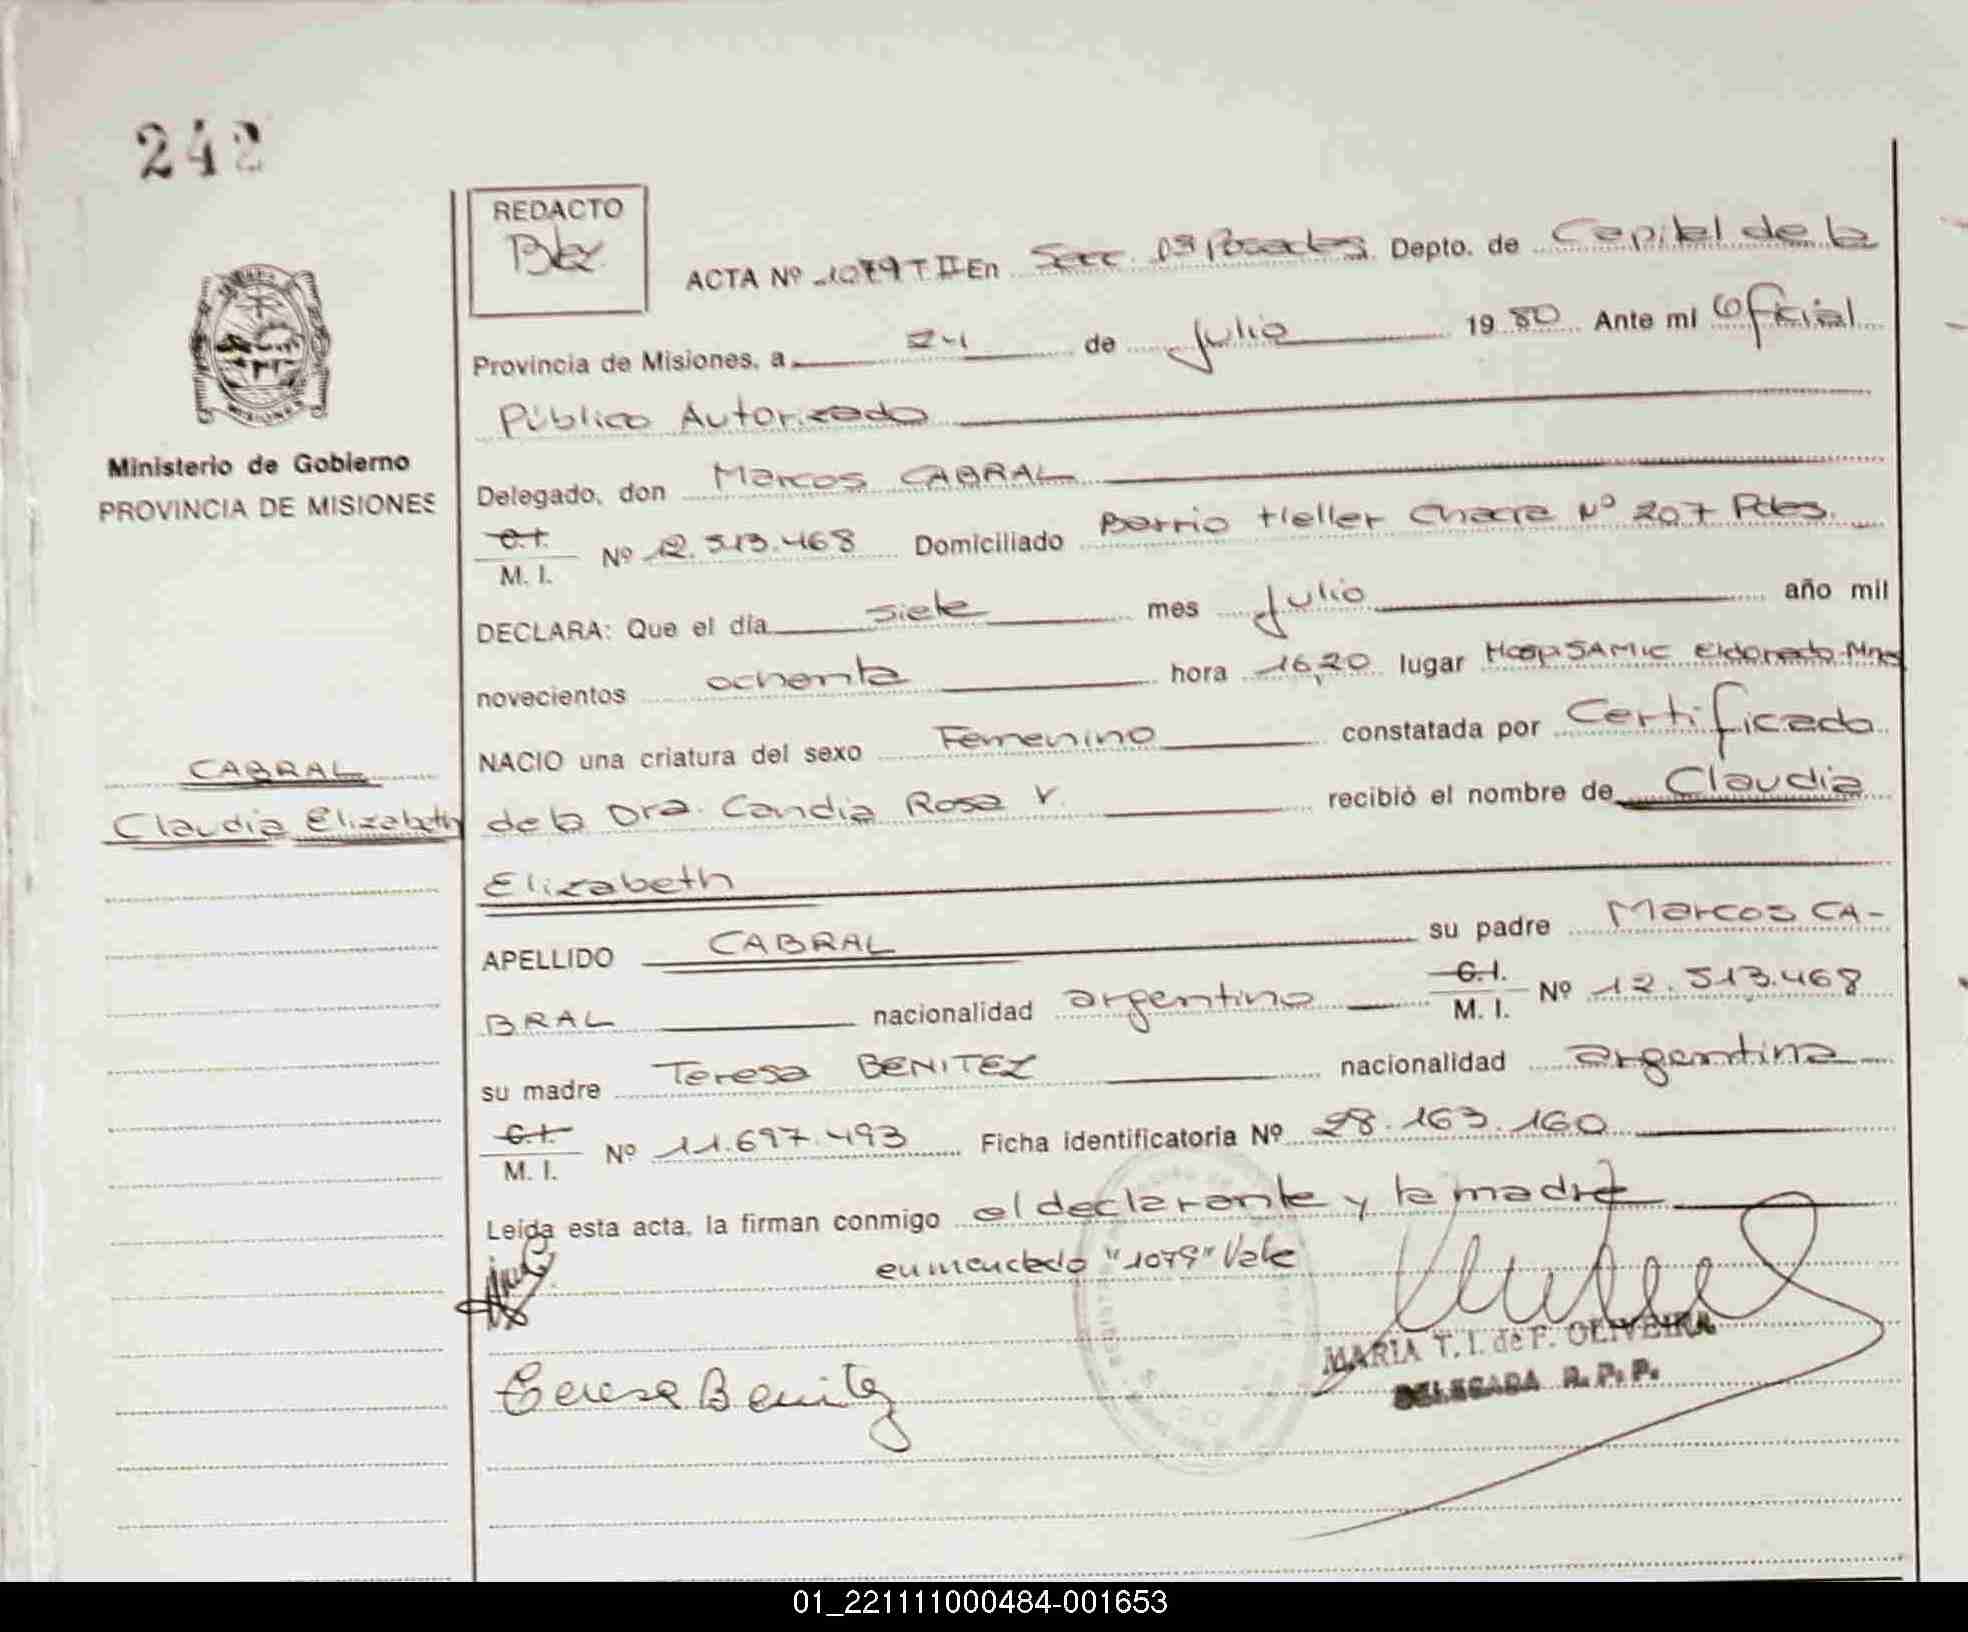 242
REDACTO
ACTA Nº 1079 T II En Secc. 1ª Posadas. Depto. de Capital de la
Provincia de Misiones, a 24 de Julio 1980 Ante mi Oficial
Público Autorizado
Ministerio de Gobierno
PROVINCIA DE MISIONES
Delegado, don Marcos CABRAL
C.I.
M. I. Nº 12.513.468 Domiciliado Barrio Heller Chacra Nº 207 Pdas.
DECLARA: Que el día siete mes Julio año mil
novecientos ochenta hora 16,20 lugar Hosp SAMIC Eldorado Mnes
NACIO una criatura del sexo Femenino constatada por Certificado
CABRAL
Claudia Elizabeth
de la Dra. Candia Rosa V. recibió el nombre de Claudia
Elizabeth
APELLIDO CABRAL su padre Marcos CA-
BRAL nacionalidad argentino C.I.
M. I. Nº 12.513.468
su madre Teresa BENITEZ nacionalidad argentina
C.I.
M. I. Nº 11.697.493 Ficha identificatoria Nº 28.163.160
Leída esta acta, la firman conmigo el declarante y la madre
enmendado "1079" Vale
MARIA T. I. de F. OLIVEIRA
DELEGADA R. P. P.
Teresa Benitez
01_221111000484-001653